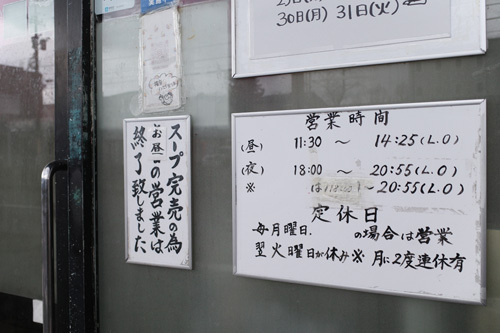 30日(月) 31日(火)
スープ完売の為
お昼の営業は
終了致しました
営業時間
(昼) 11:30 ～ 14:25(L.O)
(夜) 18:00 ～ 20:55(L.O)
※ は ～20:55(L.O)
定休日
毎月曜日. の場合は営業
翌火曜日が休み※ 月に2度連休有